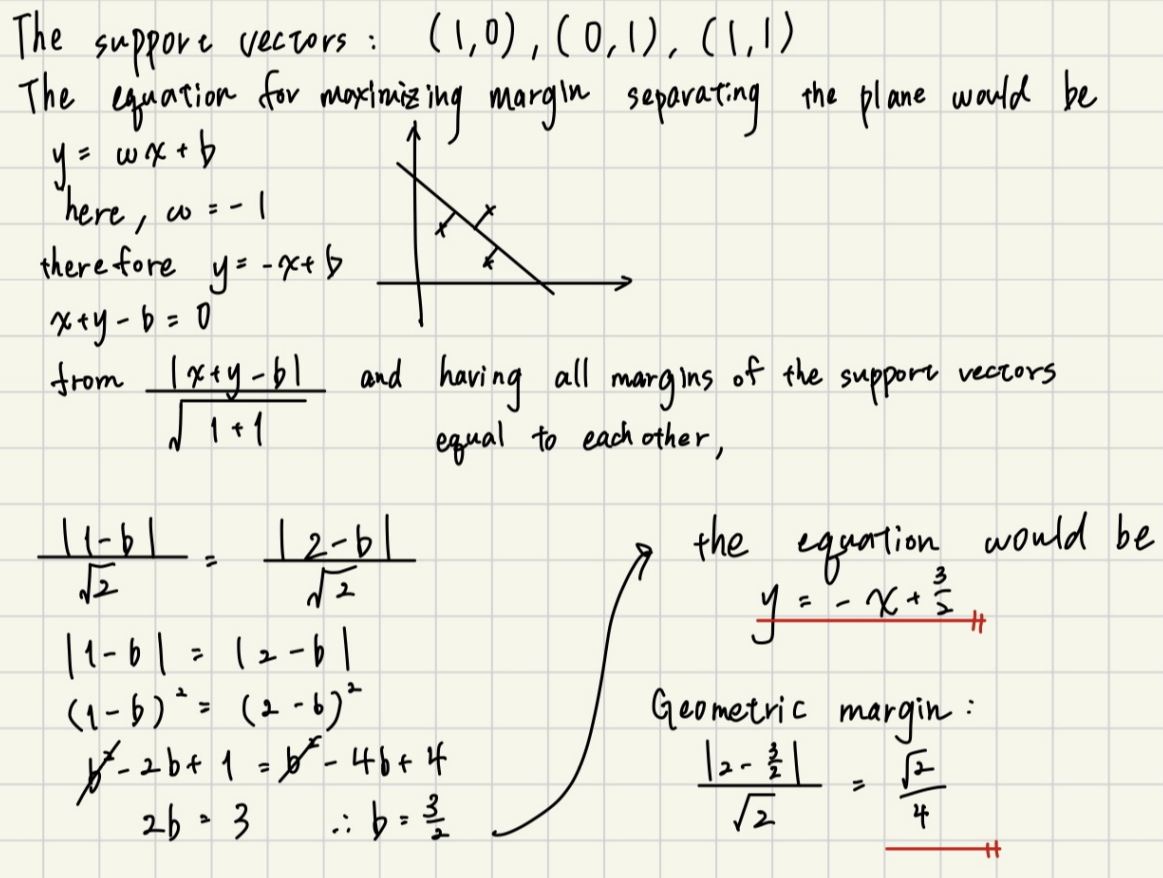 The support vectors : (1,0), (0,1), (1,1)
The equation for maximizing margin separating the plane would be
y = ωx + b
here, ω = -1
therefore y = -x + b
x+y - b = 0
from |x+y-b| / √(1+1) and having all margins of the support vectors
equal to each other,
|1-b| / √2 = |2-b| / √2
|1-b| = |2-b|
(1-b)² = (2-b)²
b² - 2b + 1 = b² - 4b + 4
2b = 3 ∴ b = 3/2
the equation would be
y = -x + 3/2
Geometric margin :
|2 - 3/2| / √2 = √2 / 4